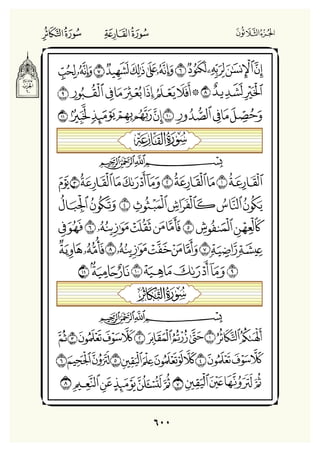 ٱلْجُزْءُ ٱلثَّلَاثُونَ سُورَةُ ٱلْقَارِعَةِ سُورَةُ ٱلتَّكَاثُرِ
إِنَّ ٱلْإِنسَٰنَ لِرَبِّهِۦ لَكَنُودٌ ٦ وَإِنَّهُۥ عَلَىٰ ذَٰلِكَ لَشَهِيدٌ ٧ وَإِنَّهُۥ لِحُبِّ
ٱلْخَيْرِ لَشَدِيدٌ ٨ ۞ أَفَلَا يَعْلَمُ إِذَا بُعْثِرَ مَا فِي ٱلْقُبُورِ ٩
وَحُصِّلَ مَا فِي ٱلصُّدُورِ ١٠ إِنَّ رَبَّهُم بِهِمْ يَوْمَئِذٍ لَّخَبِيرٌۢ ١١
سُورَةُ ٱلْقَارِعَةِ
بِسْمِ ٱللَّهِ ٱلرَّحْمَٰنِ ٱلرَّحِيمِ
ٱلْقَارِعَةُ ١ مَا ٱلْقَارِعَةُ ٢ وَمَآ أَدْرَىٰكَ مَا ٱلْقَارِعَةُ ٣ يَوْمَ
يَكُونُ ٱلنَّاسُ كَٱلْفَرَاشِ ٱلْمَبْثُوثِ ٤ وَتَكُونُ ٱلْجِبَالُ
كَٱلْعِهْنِ ٱلْمَنفُوشِ ٥ فَأَمَّا مَن ثَقُلَتْ مَوَٰزِينُهُۥ ٦ فَهُوَ فِي
عِيشَةٍ رَّاضِيَةٍ ٧ وَأَمَّا مَنْ خَفَّتْ مَوَٰزِينُهُۥ ٨ فَأُمُّهُۥ هَاوِيَةٌ
٩ وَمَآ أَدْرَىٰكَ مَا هِيَهْ ١٠ نَارٌ حَامِيَةٌۢ ١١
سُورَةُ ٱلتَّكَاثُرِ
بِسْمِ ٱللَّهِ ٱلرَّحْمَٰنِ ٱلرَّحِيمِ
أَلْهَىٰكُمُ ٱلتَّكَاثُرُ ١ حَتَّىٰ زُرْتُمُ ٱلْمَقَابِرَ ٢ كَلَّا سَوْفَ تَعْلَمُونَ ٣ ثُمَّ
كَلَّا سَوْفَ تَعْلَمُونَ ٤ كَلَّا لَوْ تَعْلَمُونَ عِلْمَ ٱلْيَقِينِ ٥ لَتَرَوُنَّ ٱلْجَحِيمَ ٦
ثُمَّ لَتَرَوُنَّهَا عَيْنَ ٱلْيَقِينِ ٧ ثُمَّ لَتُسْـَٔلُنَّ يَوْمَئِذٍ عَنِ ٱلنَّعِيمِ ٨
٦٠٠